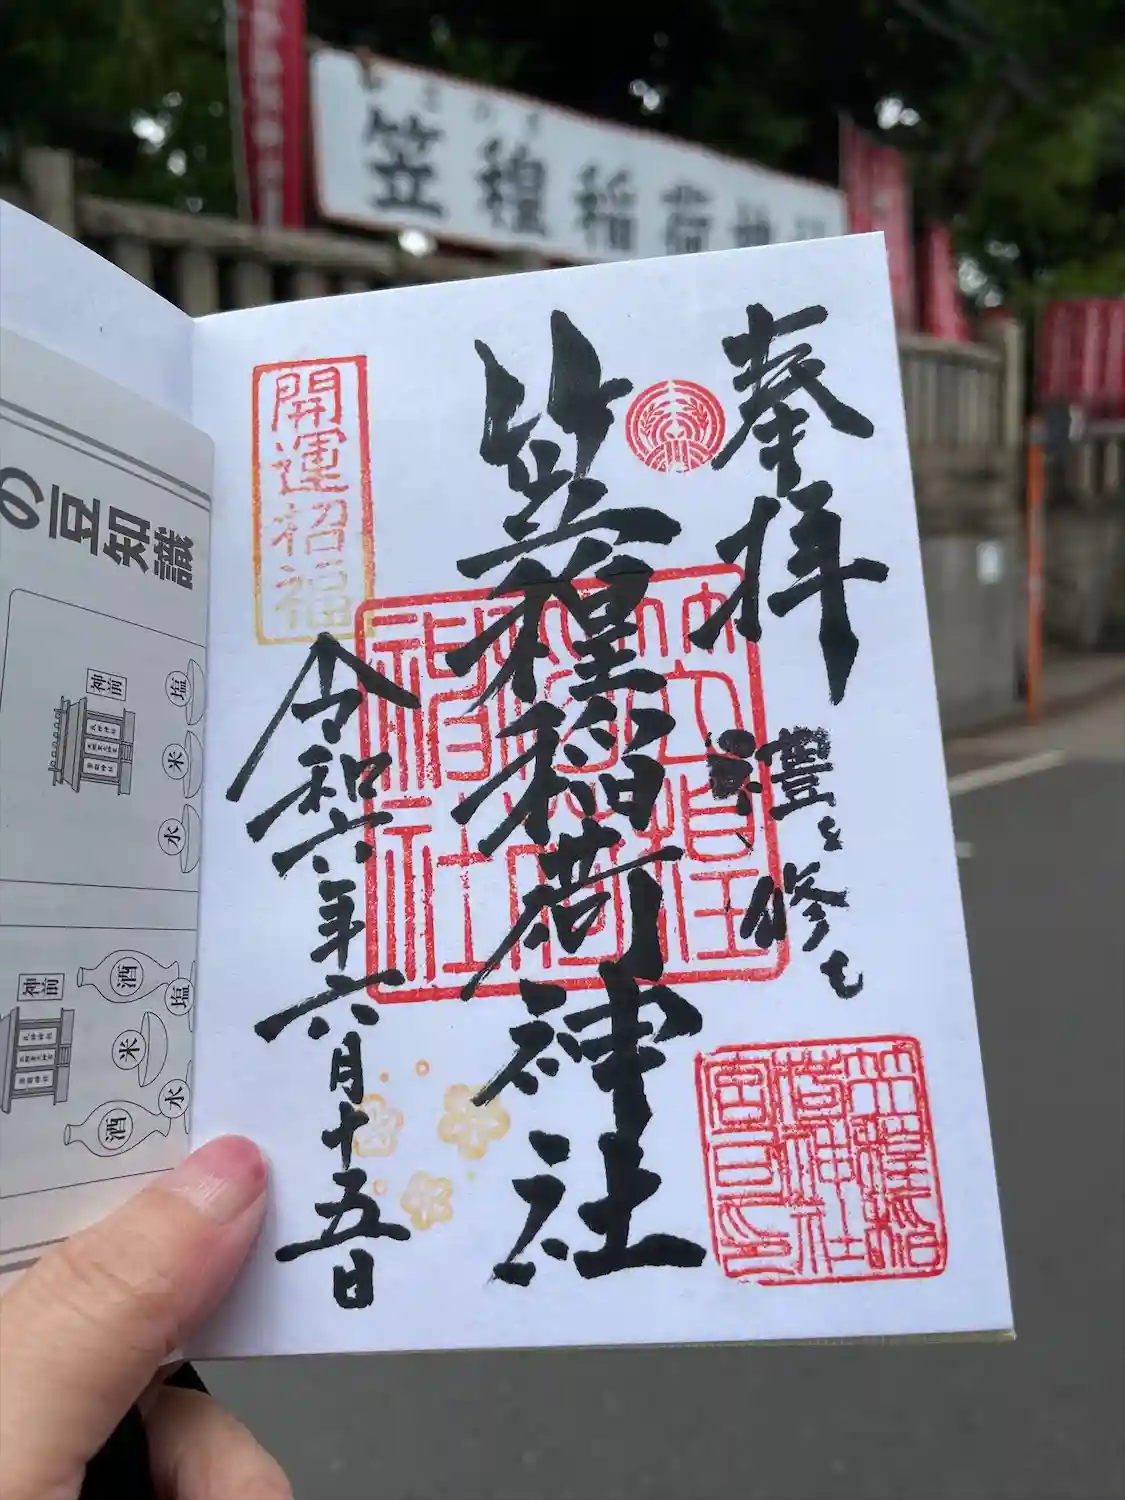 笠䅣稲荷神社
奉拝
禮を修む
笠䅣稲荷神社
令和六年六月十五日
開運招福
笠䅣稲
荷神社
宮司之印
の豆知識
神前
塩
米
水
神前
酒
塩
米
水
酒